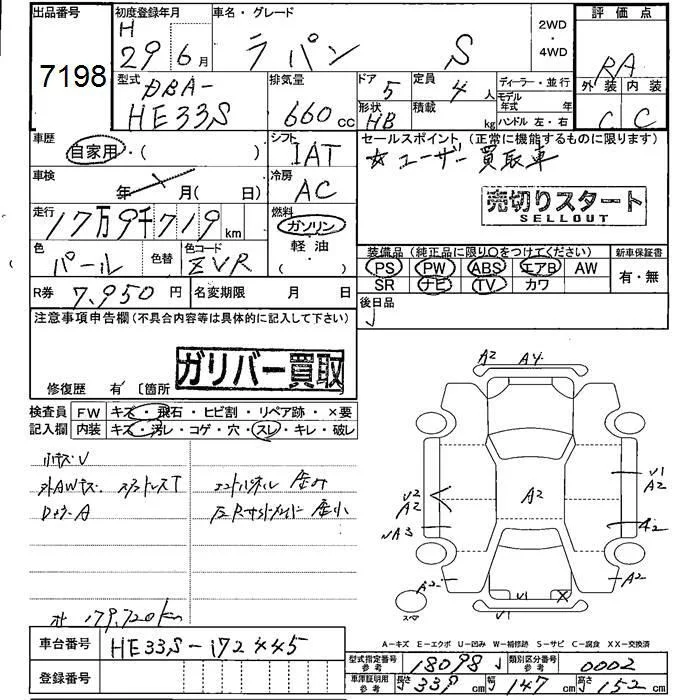 出品番号
7198
初度登録年月
H
29 6月
車名・グレード
ラパン S
2WD
・
4WD
評価点
RA
外装 内装
C C
型式
DBA-
HE33S
排気量
660 cc
ドア 5
定員 4人
形状 HB
積載 kg
ディーラー・並行
モデル年式 年
ハンドル 左・右
車歴
自家用・( )
シフト
IAT
セールスポイント (正常に機能するものに限ります)
☆ユーザー買取車
車検
年 月( 日)
冷房
AC
売切りスタート
SELLOUT
走行
17万9千719 km
燃料
ガソリン
軽油
( ・ )
色
パール
色替
色コード
ZVR
装備品 (純正品に限り○をつけてください)
新車保証書
PS PW ABS エアB AW
SR ナビ TV カワ
有・無
R券 7,950 円
名変期限 月 日
後日品
注意事項申告欄(不具合内容等は具体的に記入して下さい)
ガリバー買取
修復歴 有 〔箇所 〕
検査員
記入欄
FW キズ・飛石・ヒビ割・リペア跡・×要
内装 キズ・汚レ・コゲ・穴・スレ・キレ・破レ
小キズV
外AWキズ
座小
計 179,720km
A2 A4
V2
A2
A2
V1
A2
A2
A2
A2
V1
V1
X
スペア
A-キズ E-エクボ U-凹み W-補修跡 S-サビ C-腐食 XX-交換済
車台番号 HE33S-172445
登録番号
型式指定番号 参考 18098
類別区分番号 参考 0002
車庫証明用 参考 長さ 339 cm 幅 147 cm 高さ 152 cm